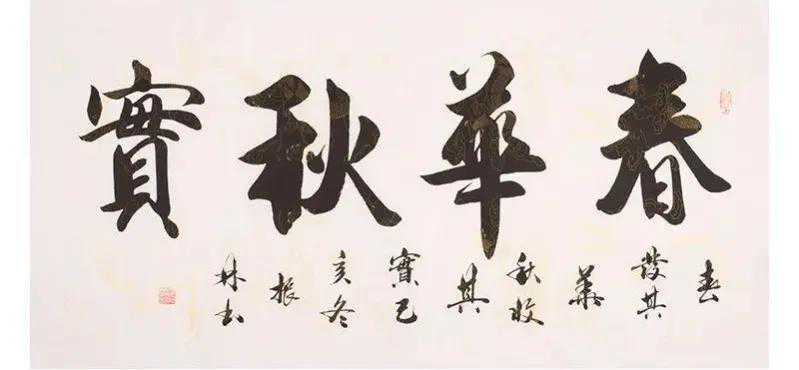 春華秋實
春發其華秋收其實己亥冬振林书